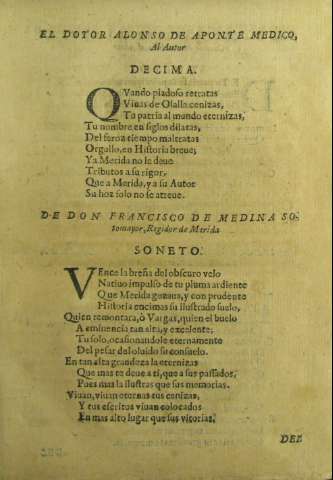 EL DOTOR ALONSO DE APONTE MEDICO,
Al Autor
DECIMA.
QVando piadoso retratas
Viuas de Olalla cenizas,
Tu patria al mundo eternizas,
Tu nombre, en siglos dilatas,
Del feroz tiempo maltratas
Orgullo, en Historia breue;
Ya Merida no le deue
Tributos a su rigor,
Que a Merida, y a su Autor
Su hoz solo no se atreue.
DE DON FRANCISCO DE MEDINA So-
tomayor, Regidor de Merida
SONETO.
VEnce la breña del obscuro velo
Natiuo impulso de tu pluma ardiente
Que Merida gozaua, y con prudente
Historia encimas su ilustrado suelo,
Quien remontara, ò Vargas, quien el buelo
A eminencia tan alta, y excelente;
Tu solo, ocasionandole eternamente
Del pesar del oluido su consuelo.
En tan alta grandeza la eternizas
Que mas te deue a ti, que a sus passados,
Pues mas la ilustras que sus memorias.
Viuan, viuan eternas tus cenizas,
Y tus escritos viuan colocados
En mas alto lugar que sus vitorias.
DEL